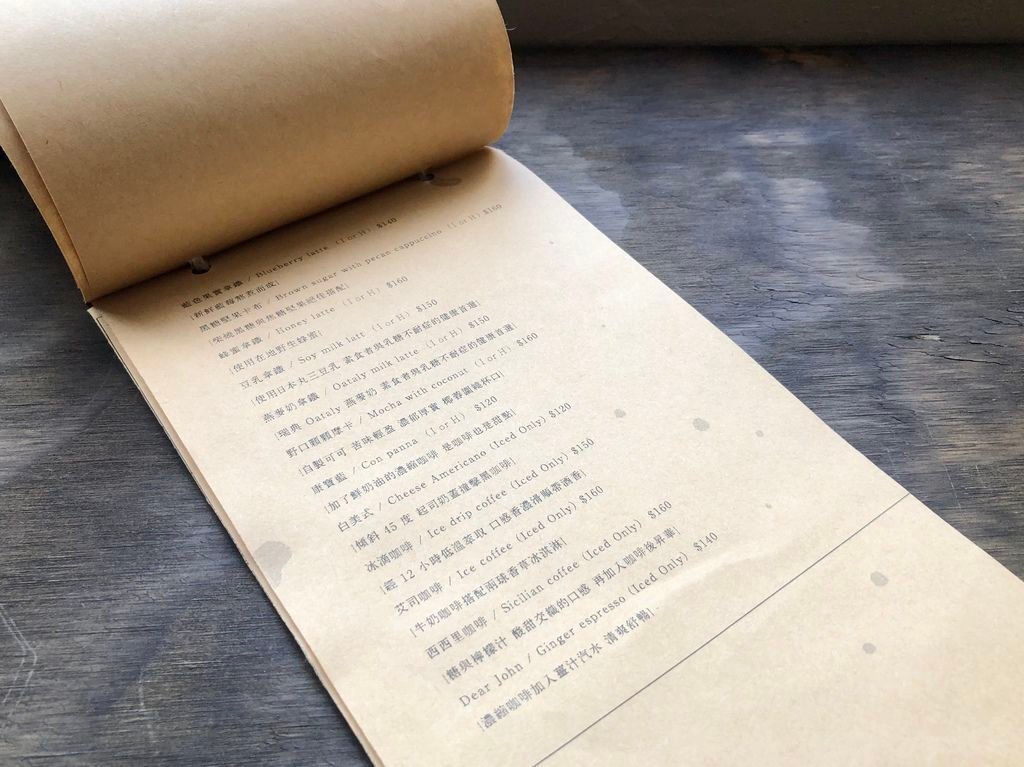 藍莓果實拿鐵 / Blueberry latte (I or H) $140
|新鮮藍莓熬煮而成|
黑糖堅果卡布 / Brown sugar with pecan cappuccino (I or H) $160
黑糖與焦糖堅果絕佳搭配|
蜂蜜拿鐵 / Honey latte (I or H) $160
|使用在地野生蜂蜜|
豆乳拿鐵 / Soy milk latt (I or H) $150
|使用日本丸三豆乳 素食者與乳糖不耐症的健康首選|
燕麥奶拿鐵 / Oataly milk latte (I or H) $150
|瑞典 Oataly 燕麥奶 素食者與乳糖不耐症的健康首選|
野口顆顆摩卡 / Mocha with coconut (I or H) $160
|自製可可 苦味輕盈 濃郁厚實 椰香圍繞杯口|
康寶藍 / Con panna (I or H) $120
|加了鮮奶油的濃縮咖啡 是咖啡也是甜點|
白美式 / Cheese Americano (Iced Only) $120
|傾斜 45 度 起司奶蓋撞擊黑咖啡|
冰滴咖啡 / Ice drip coffee (Iced Only) $150
|經 12 小時低溫萃取 口感香濃滑順帶酒香|
艾司咖啡 / Ice coffee (Iced Only) $160
|牛奶咖啡搭配兩球香草冰淇淋|
西西里咖啡 / Sicilian coffee (Iced Only) $160
|糖與檸檬汁 酸甜交織的口感 再加入咖啡後昇華|
Dear John / Ginger espresso (Iced Only) $140
|濃縮咖啡加入薑汁汽水 清爽舒暢|